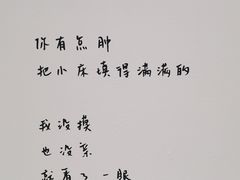 你有点肿
把小床填得满满的
我没摸
也没亲
就看了一眼